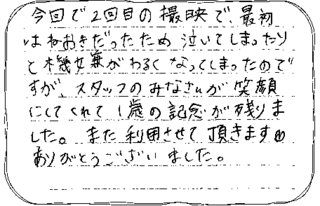 今回で2回目の撮映で、最初
はねおきだったため泣いてしまったり
と機嫌がわるくなってしまったので
すが、スタッフのみなさんが笑顔
にしてくれて1歳の記念が残りま
した。また利用させて頂きます
ありがとうございました。